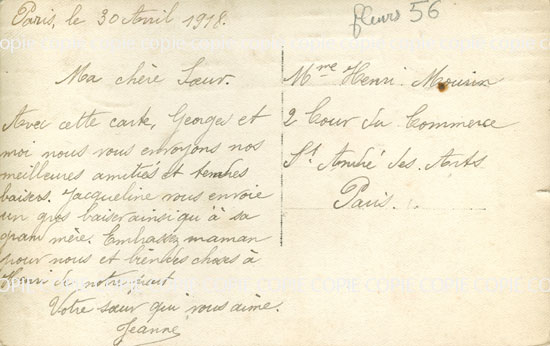 Paris, le 30 Avril 1918.
fleurs 56
Ma chère Sœur.
Avec cette carte, Georges et
moi nous vous envoyons nos
meilleures amitiés et tendres
baisers. Jacqueline vous envoie
un gros baiser ainsi qu'à sa
grand mère. Embrassez maman
pour nous et bien des choses à
Henri de notre part
Votre sœur qui vous aime.
Jeanne
Mme Henri
2 Cour du Commerce
St André des Arts
Paris.
COPIE COPIE COPIE COPIE COPIE COPIE COPIE COPIE
COPIE COPIE COPIE COPIE COPIE COPIE COPIE COPIE